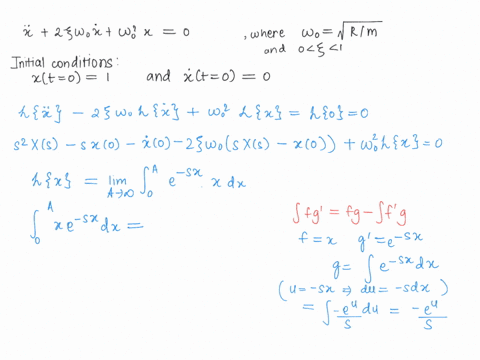 ẍ + 2ξω₀ẋ + ω₀² x = 0 , where ω₀ = √R/m
and 0<ξ<1
Initial conditions:
x(t=0) = 1 and ẋ(t=0) = 0
h{ẍ} - 2ξω₀ h{ẋ} + ω₀² h{x} = h{0} = 0
s² X(s) - s x(0) - ẋ(0) - 2ξω₀(s X(s) - x(0)) + ω₀² h{x} = 0
h{x} = lim A→∞ ∫₀ᴬ e^{-sx} · x dx
∫₀ᴬ x e^{-sx} dx =
∫fg' = fg - ∫f'g
f = x g' = e^{-sx}
g = ∫ e^{-sx} dx
( u = -sx ⇒ du = -s dx )
= ∫ -e^u/s du = -e^u/s